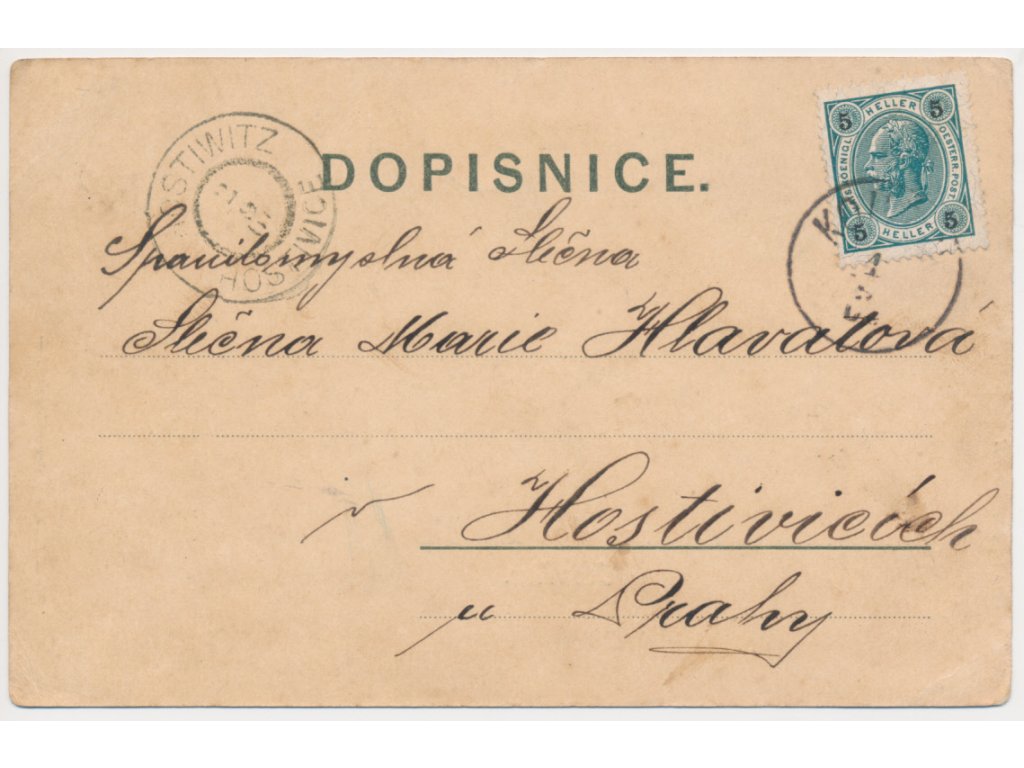 DOPISNICE.
HOSTIWITZ
HOSTIVICE
5 HELLER 5
KS. KOENIGL. OESTERR. POST
5 HELLER 5
Slečna
Slečna Marie Hlavatová
v Hostivicích
u Prahy